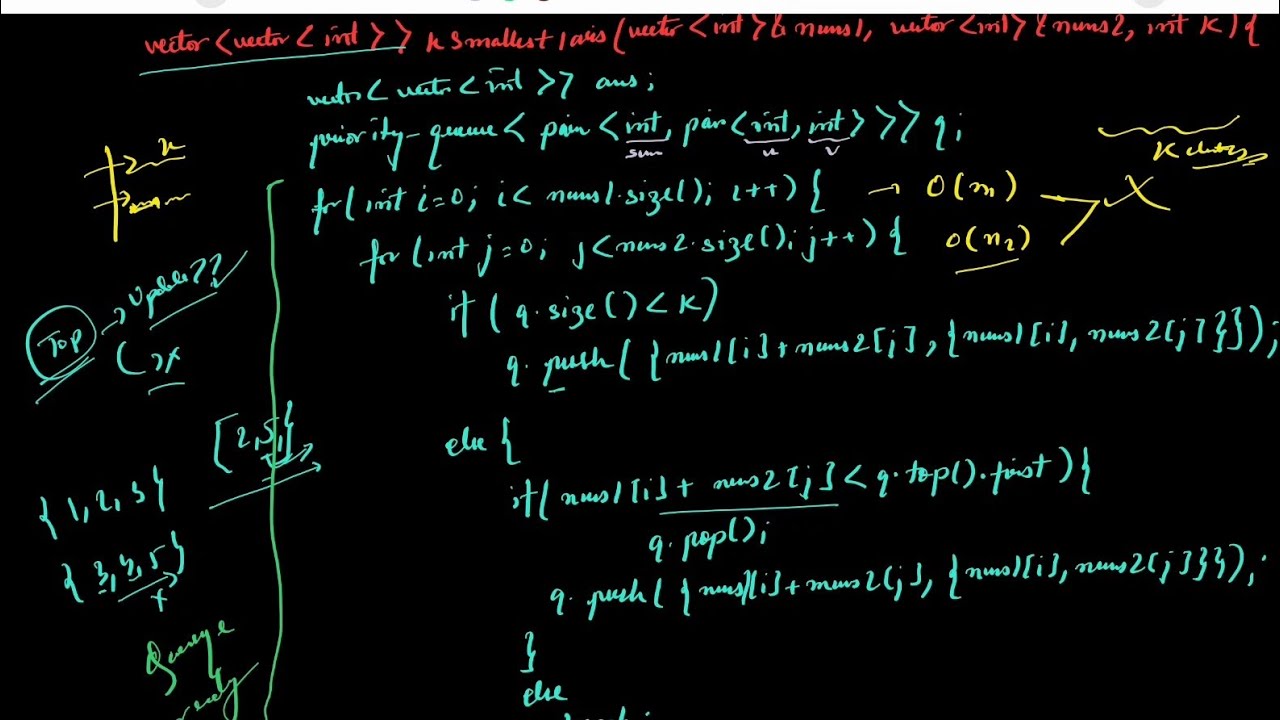 vector<vector<int>> kSmallestPairs(vector<int>& nums1, vector<int>& nums2, int k){
vector<vector<int>> ans;
priority-queue< pair<int, pair<int, int>>> q;
sum u v
k
for(int i=0; i<nums1.size(); i++) { → O(n1)
for(int j=0; j<nums2.size(); j++) { O(n2)
if (q.size()<k)
q.push( {nums1[i]+nums2[j], {nums1[i], nums2[j]}});
Top → Update??
else {
[2,5,}
{1,2,3}
if(nums1[i]+ nums2[j]< q.top().first){
q.pop();
{3,4,5}
q.push( {nums1[i]+nums2[j], {nums1[i], nums2[j]}});
}
else